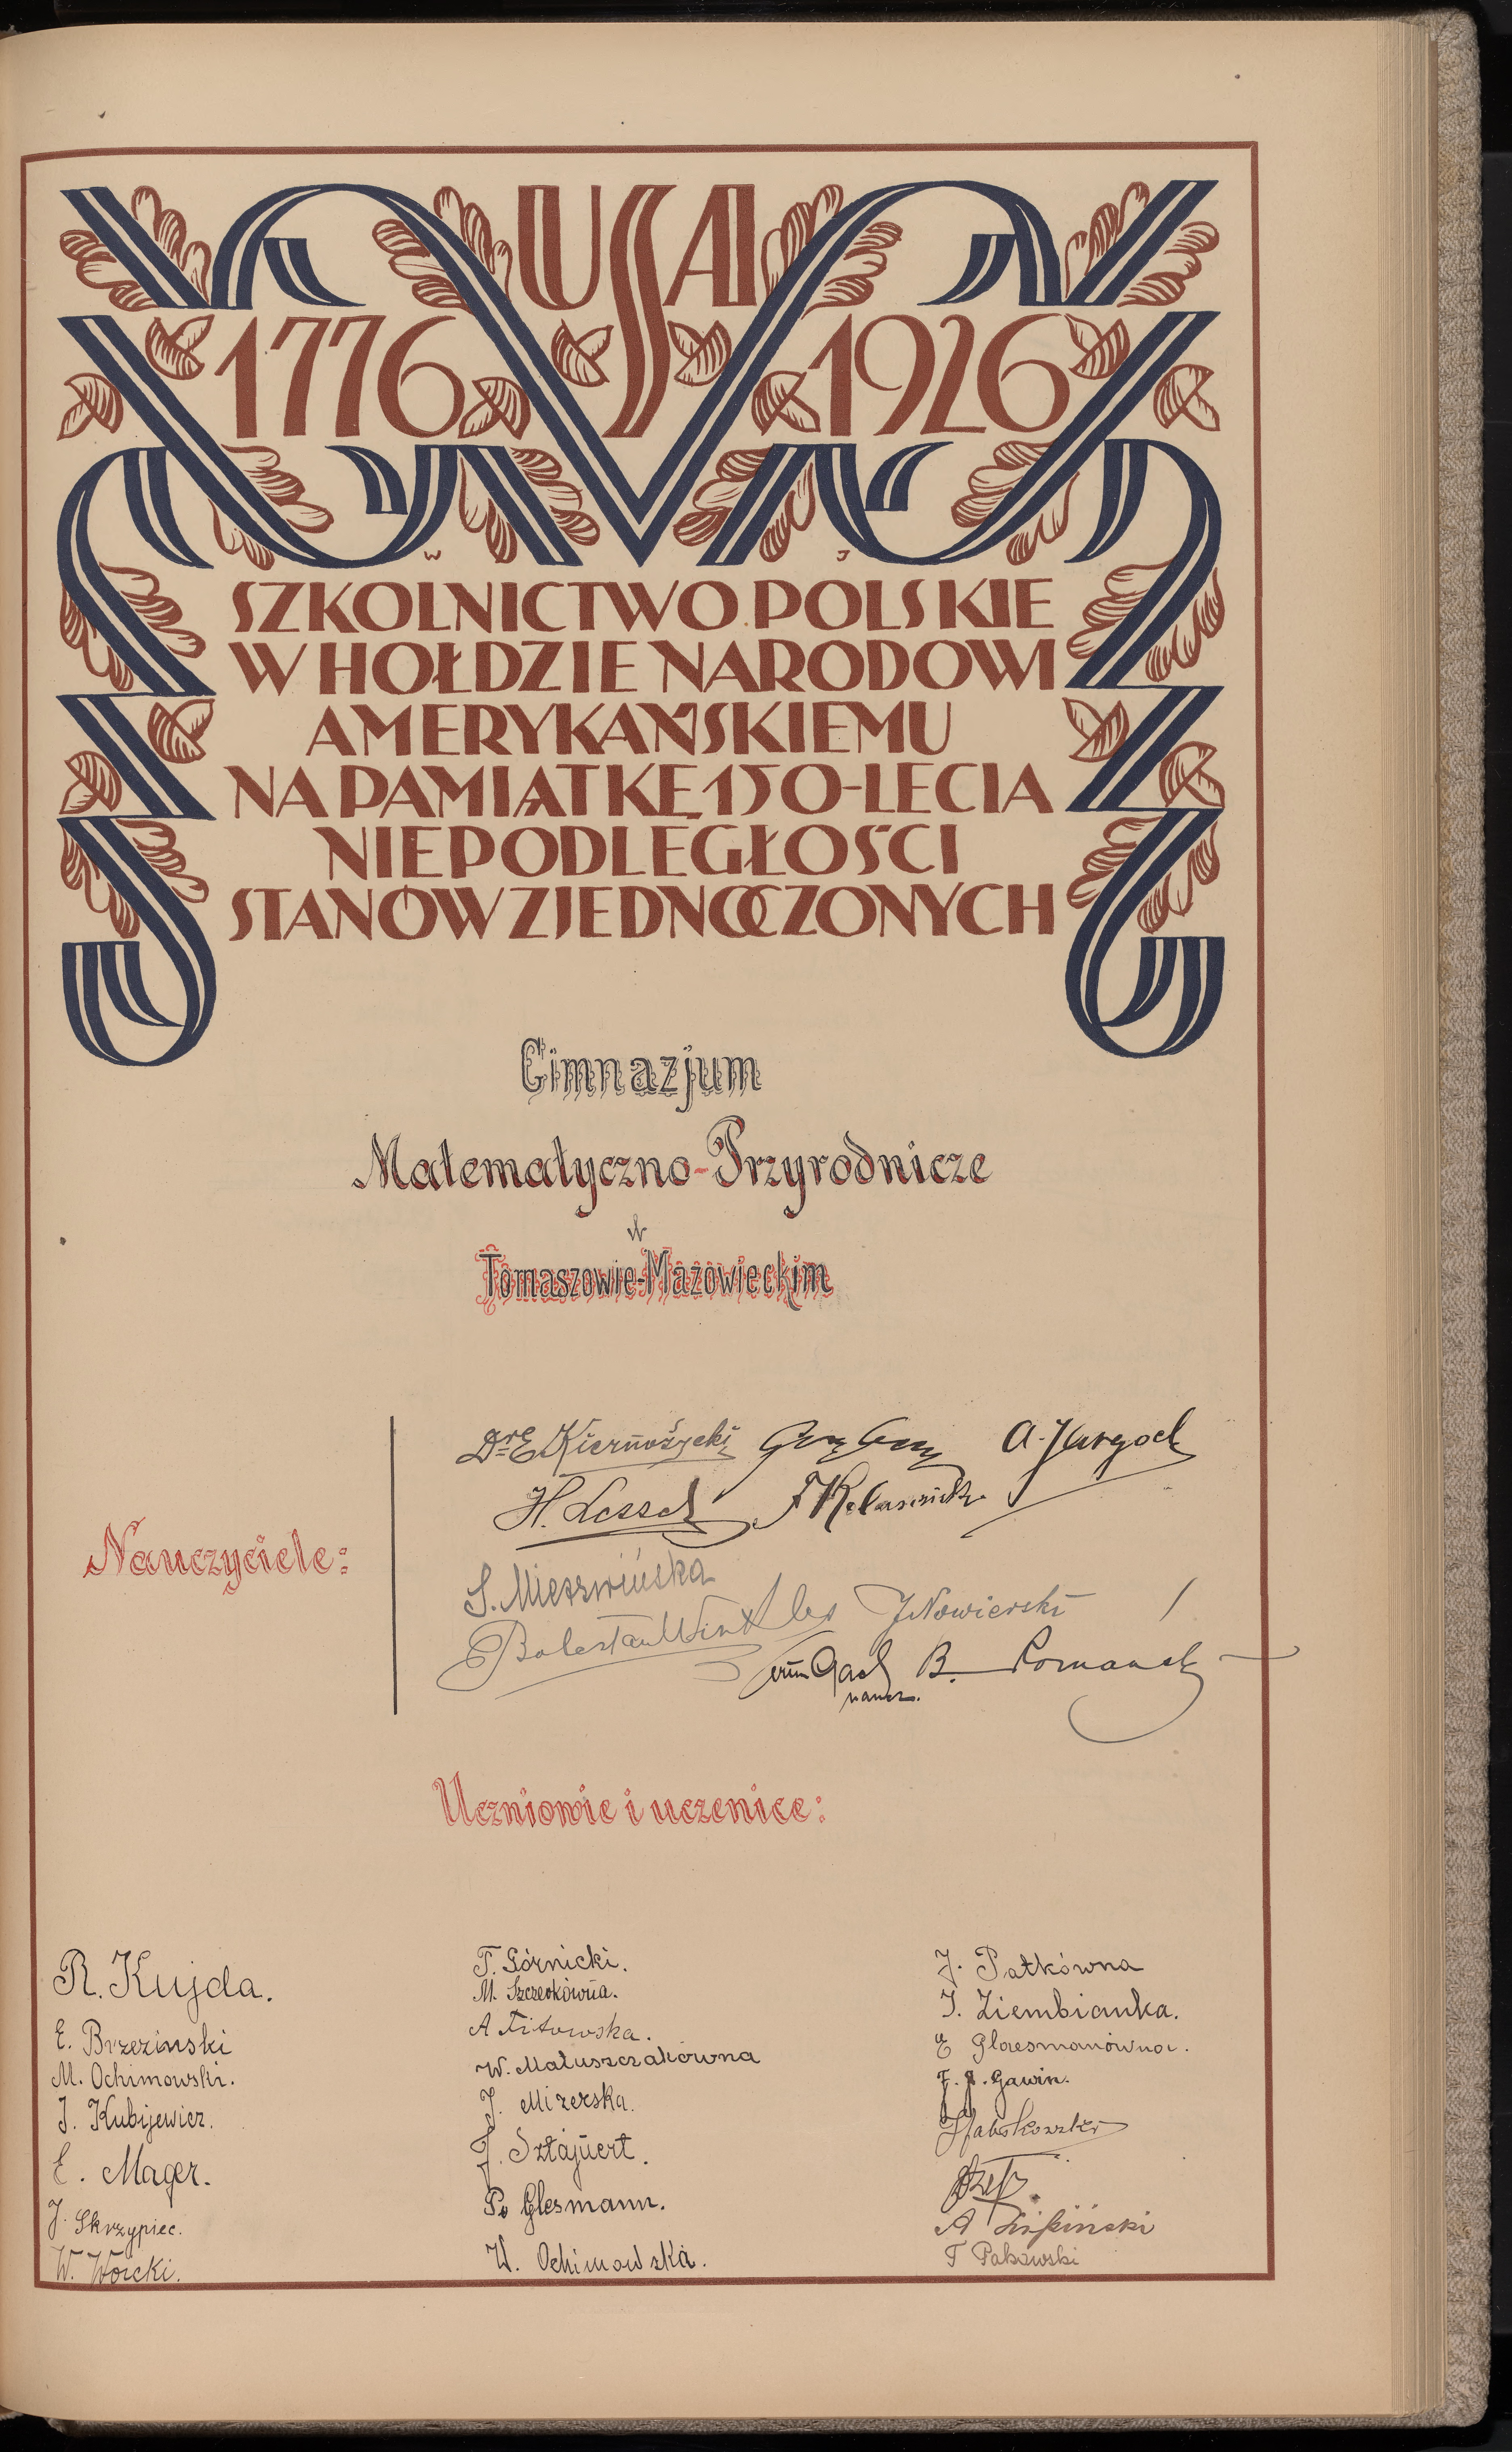 USA
1776 1926
W J
SZKOLNICTWO POLSKIE
W HOŁDZIE NARODOWI
AMERYKAŃSKIEMU
NA PAMIĄTKĘ 150-LECIA
NIEPODLEGŁOŚCI
STANÓW ZJEDNOCZONYCH
Gimnazjum
Matematyczno-Przyrodnicze
w
Tomaszowie-Mazowieckim
Nauczyciele:
Dr E Kiernożycki
A.
H. Lessel F
S. Mierzwińska
Bolesław Winkler J Nowierski
Gach B. Romanek
naucz.
Uczniowie i uczenice:
R. Kujda.
E. Brzezinski
M. Ochimowski.
J. Kubijewicz.
E. Mager.
J. Skrzypiec.
W. Worcki.
T. Górnicki.
M. Szczerkówna.
A Titowska.
W. Matuszczakówna
J. Mizerska.
J. Sztajnert.
P. Glesmann.
W. Ochimowska.
J. Pałkówna
J. Ziembianka.
E Glaesmanówna.
F. J. Gawin.
J
A
T Pakowski